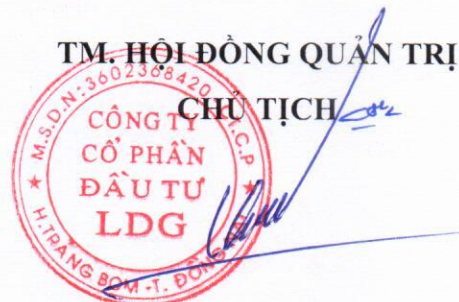 TM. HỘI ĐỒNG QUẢN TRỊ
CHỦ TỊCH
M.S.D.N:3602368420 - C.T.C.P
CÔNG TY
CỔ PHẦN
ĐẦU TƯ
LDG
H.TRẢNG BOM -T. ĐỒNG